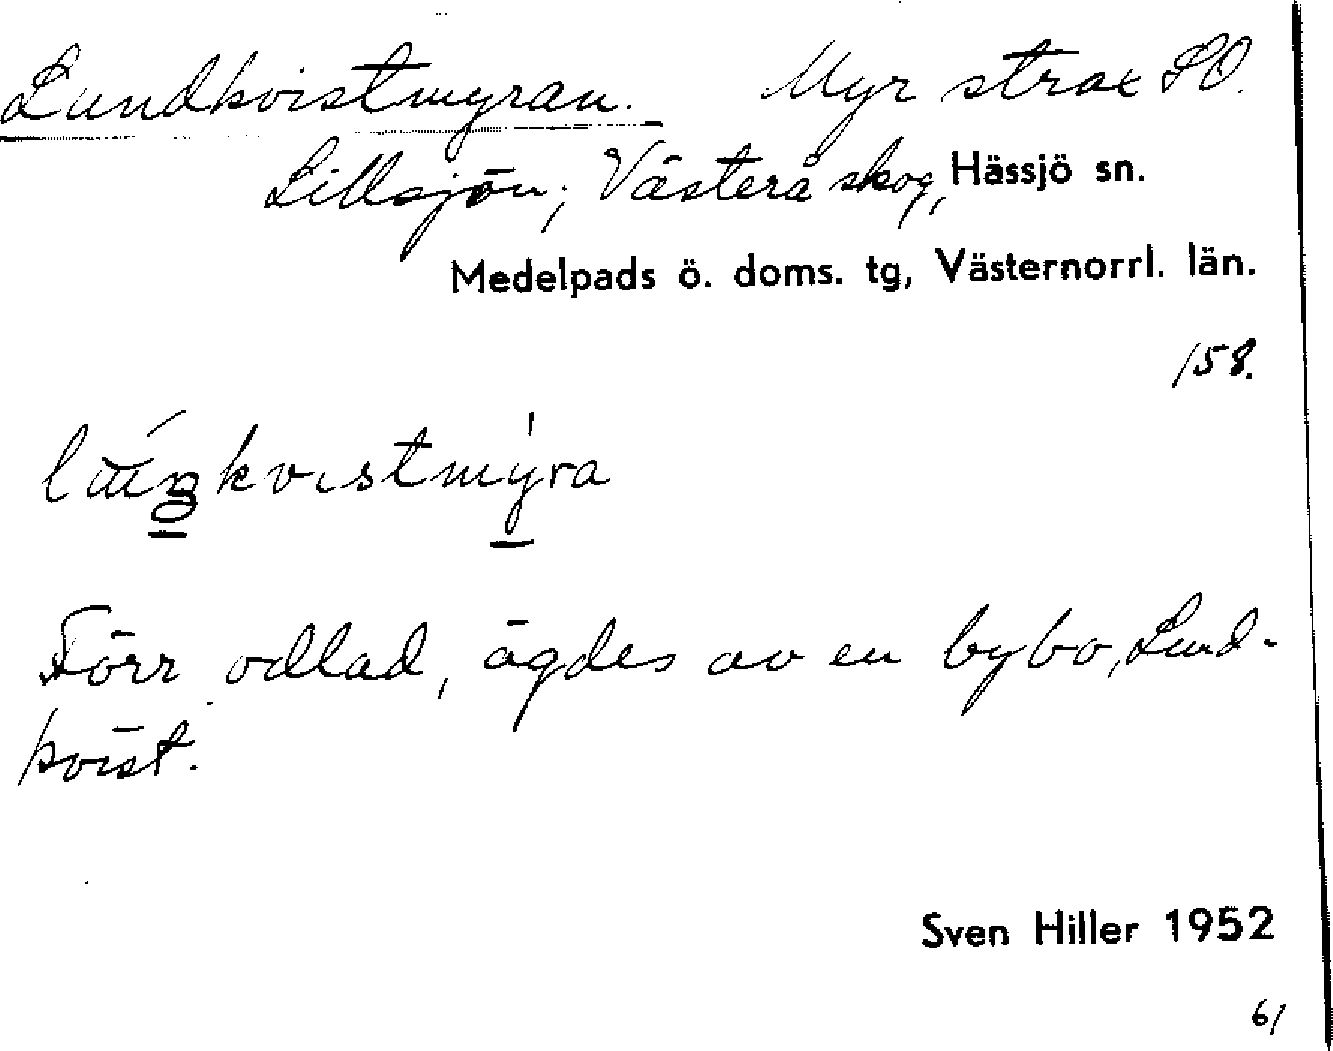 Lundkvistmyran. Myr strax SO.
Lillsjön; Västerå skog, Hässjö sn.
Medelpads ö. doms. tg, Västernorrl. län.
158.
luŋkvıstmyra
Förr odlad, ägdes av en bybo, Lund-
kvist.
Sven Hiller 1952
61